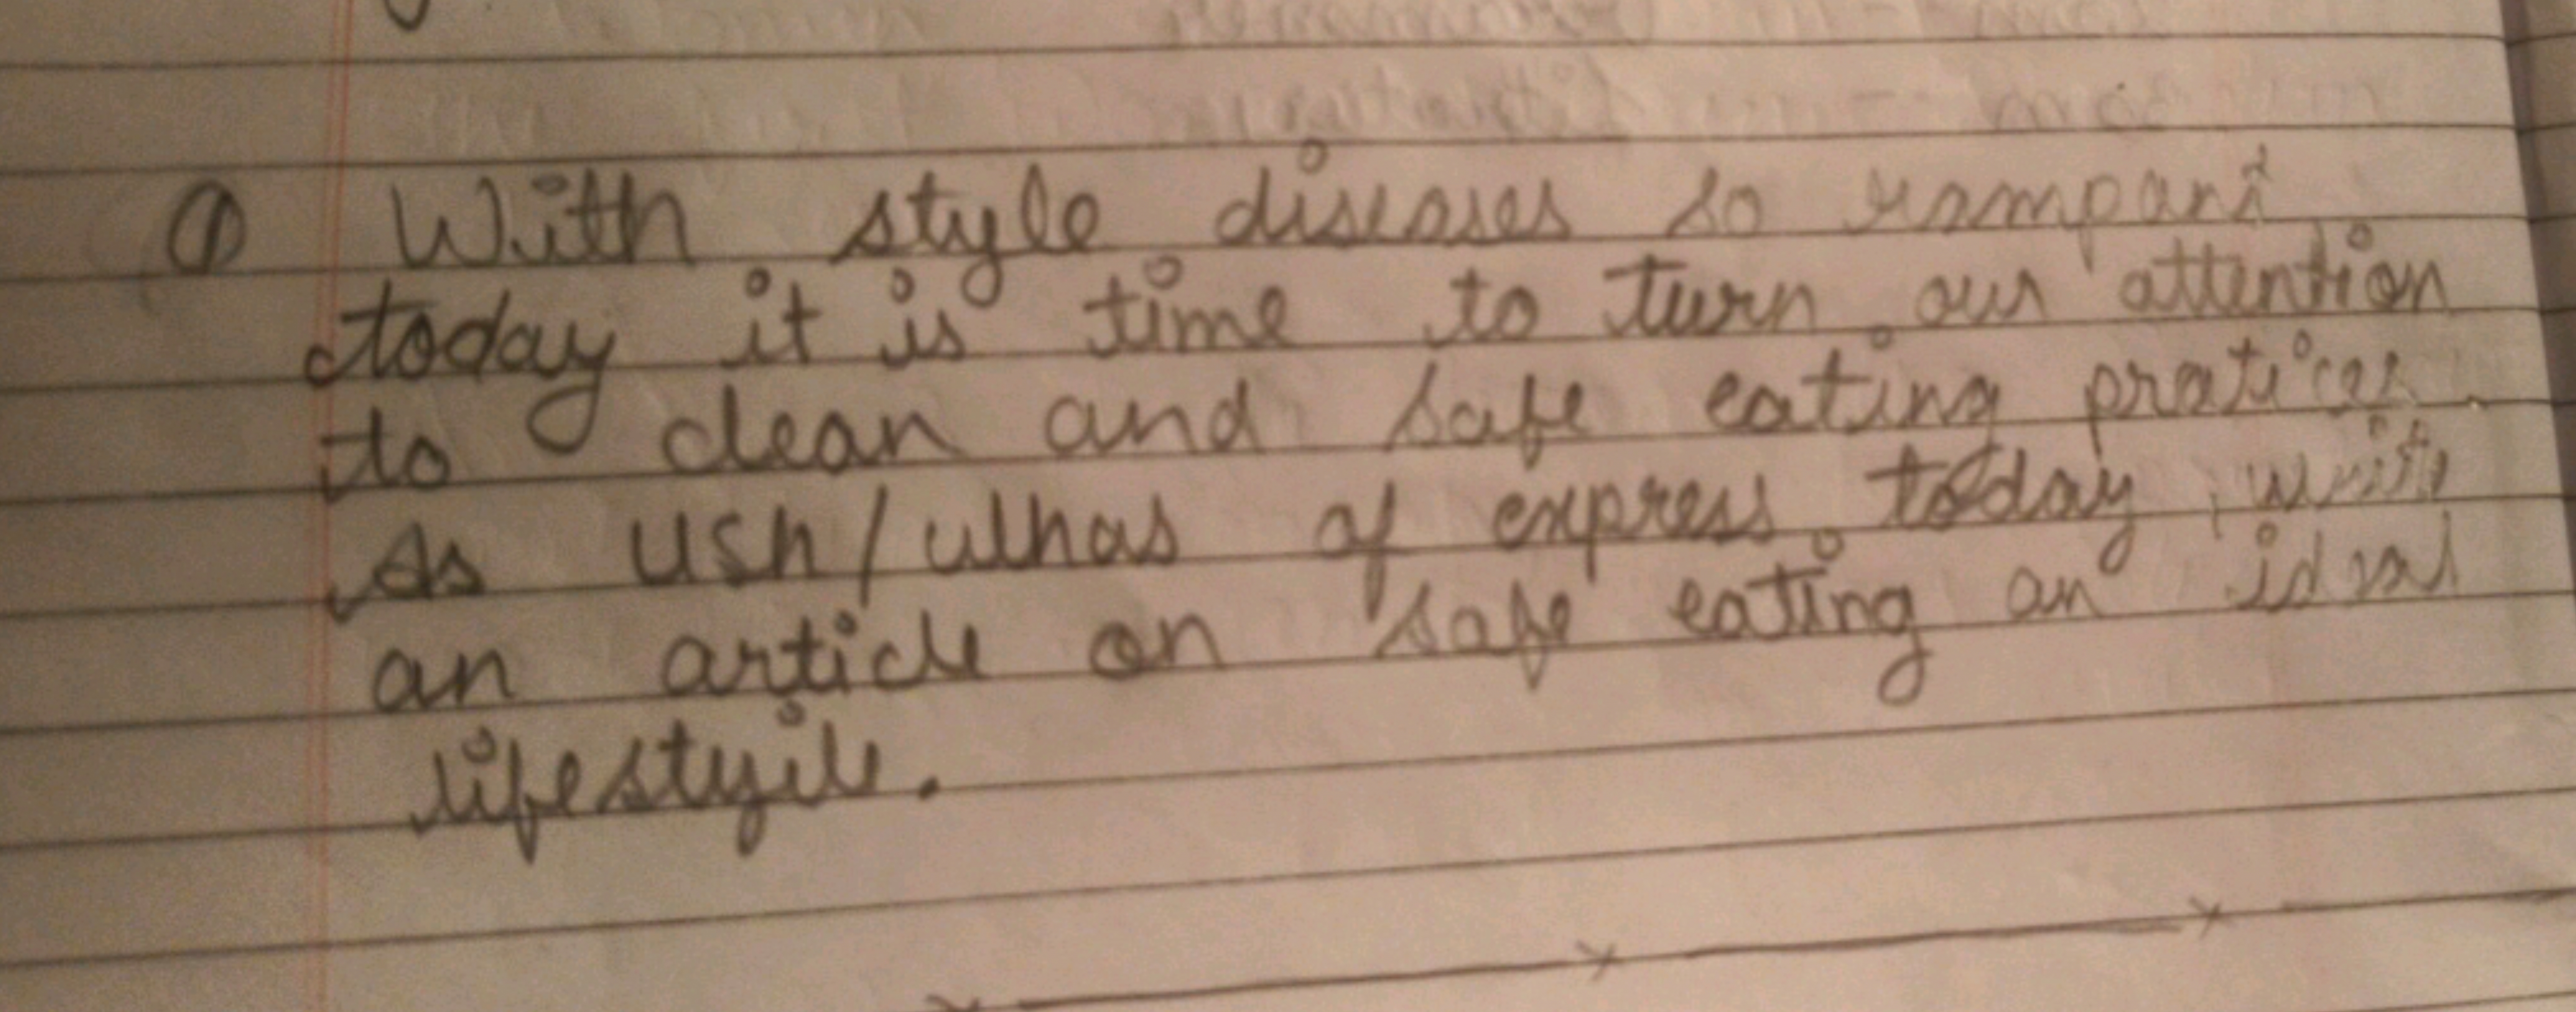 ① With style diseases so rampant
today it is time to turn our attention
to clean and safe eating pratices
As USh/ulhas of express today, write
an article on safe eating an ideal
lifestyile.